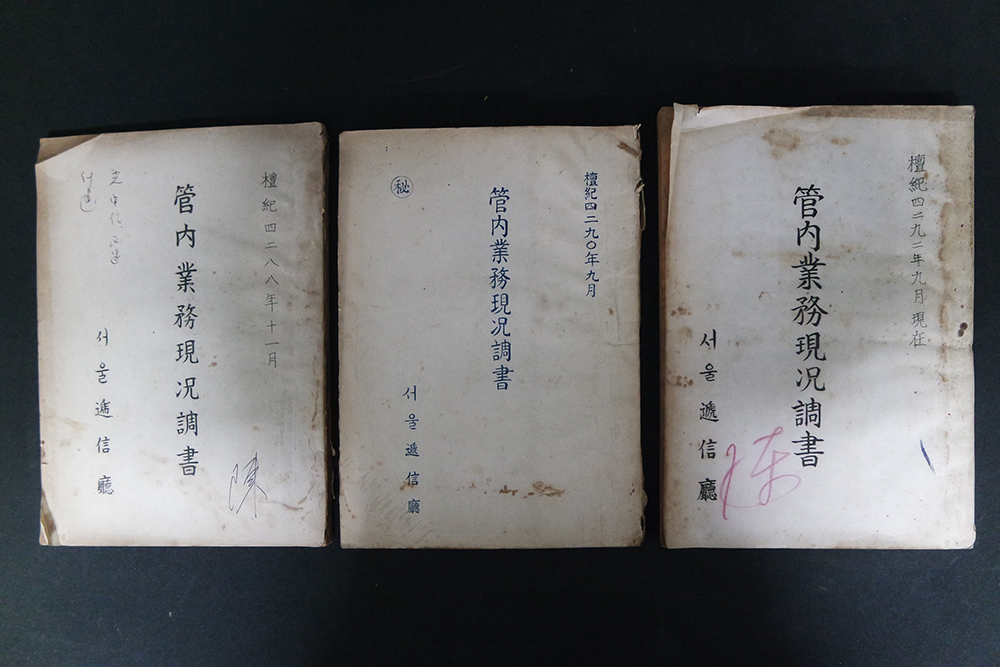 檀紀四二八八年十一月
管内業務現况調書
서울遞信廳
陳
檀紀四二九〇年九月
管内業務現况調書
秘
서울遞信廳
檀紀四二九二年九月現在
管内業務現况調書
서울遞信廳
陳